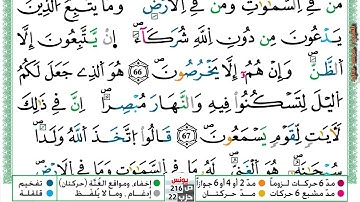 مَن فِى ٱلسَّمَـٰوَٰتِ وَمَن فِى ٱلْأَرْضِ ۗ وَمَا يَتَّبِعُ ٱلَّذِينَ
يَدْعُونَ مِن دُونِ ٱللَّهِ شُرَكَآءَ ۚ إِن يَتَّبِعُونَ إِلَّا
ٱلظَّنَّ وَإِنْ هُمْ إِلَّا يَخْرُصُونَ 66 هُوَ ٱلَّذِى جَعَلَ لَكُمُ
ٱلَّيْلَ لِتَسْكُنُوا۟ فِيهِ وَٱلنَّهَارَ مُبْصِرًا ۚ إِنَّ فِى ذَٰلِكَ
لَـَٔايَـٰتٍ لِّقَوْمٍ يَسْمَعُونَ 67 قَالُوا۟ ٱتَّخَذَ ٱللَّهُ وَلَدًا ۗ
سُبْحَـٰنَهُۥ ۖ هُوَ ٱلْغَنِىُّ ۖ لَهُۥ مَا فِى ٱلسَّمَـٰوَٰتِ وَمَا فِى ٱلْأَرْضِ
مدّ 6 حركات لزوماً مدّ 2 أو 4 أو 6 جوازاً إخفاء، ومواقع الغُنَّة (حركتان) تفخيم
مدّ مشبع 6 حركات مدّ حركتان إدغام، وما لا يُلفظ قلقلة
يونس
216
حزب 22